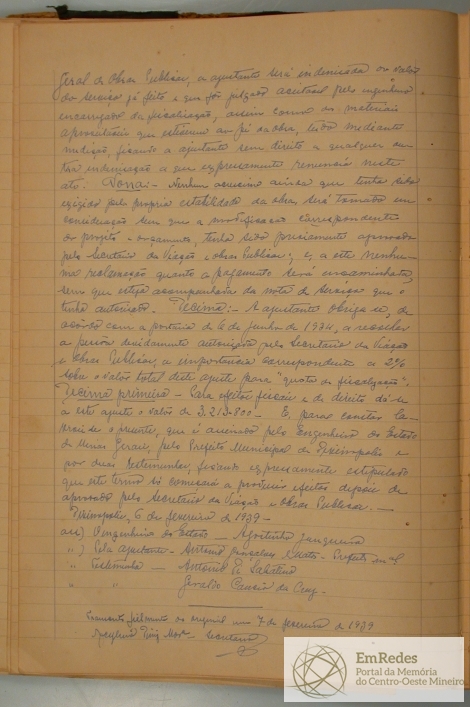 Geral de Obras Publicas, a ajustante será indenisada no valor
do serviço já feito e que fôr julgado aceitavel pelo engenheiro
encarregado da fiscalização, assim como os materiais
aproveitaveis que estiverem ao pé da obra, tudo mediante
medição, ficando a ajustante sem direito a qualquer ou
tra indenização a que expressamente renuncia neste
ato. Nona:- Nenhum acrescimo ainda que tenha sido
exigido pela propria estabilidade da obra será tomado em
consideração sem que a modificação correspondente
do projéto - orçamento, tenha sido previamente aprovada
pela Secretaria da Viação e Obras Publicas; e, a este nenhu-
ma reclamação quanto a pagamento será encaminhada,
sem que esteja acompanhada da nota de serviço que a
tenha autorizado. Decima:- A ajustante obriga-se, de
acôrdo com a portaria de 6 de Junho de 1934, a recolher
a pessôa devidamente autorizada pela Secretaria da Viação
e Obras Publicas, a importancia correspondente a 2%
sobre o valor total deste ajuste para "quota de fiscalização".
Decima primeira - Para efeitos fiscais e de direito dá-se
a este ajuste o valor de 3.213.800 - E, para constar la-
vrou-se o presente, que é assinado pelo Engenheiro do Estado
de Minas Gerais, pelo Prefeito Municipal de
por duas testemunhas, ficando expressamente estipulado
que este termo só começará a produzir efeitos depois de
aprovado pela Secretaria da Viação e Obras Publicas. -
6 de fevereiro de 1939 -
aa) Engenheiro do Estado - Agostinho Junqueira
") Pela ajustante - Antonio Gonçalves - Prefeito m-al
" Testemunha - Antonio
" " Geraldo da Cruz -
fielmente do original em 7 de fevereiro de 1939
- Secretario
EmRedes
Portal da Memória
do Centro-Oeste Mineiro